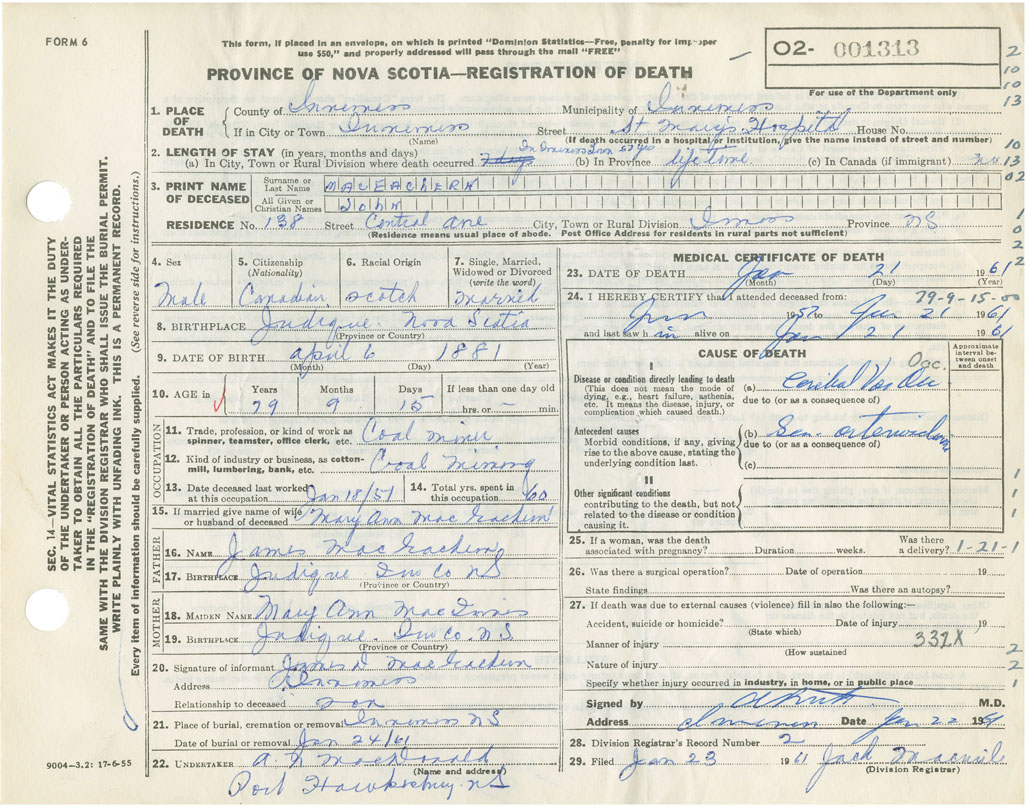 FORM 6
This form, if placed in an envelope, on which is printed "Dominion Statistics—Free, penalty for improper
use $50," and properly addressed will pass through the mail "FREE"
PROVINCE OF NOVA SCOTIA—REGISTRATION OF DEATH
02- 001313
For use of the Department only
1. PLACE OF DEATH
County of Inverness Municipality of Inverness
If in City or Town Inverness Street St Mary's Hospital House No.
(Name) (If death occurred in a hospital or institution, give the name instead of street and number)
2. LENGTH OF STAY (in years, months and days)
(a) In City, Town or Rural Division where death occurred (b) In Province life time (c) In Canada (if immigrant)
3. PRINT NAME OF DECEASED
Surname or Last Name MACEACHERN
All Given or Christian Names JOHN
RESIDENCE No. 138 Street Central Ave City, Town or Rural Division Province NS
(Residence means usual place of abode. Post Office Address for residents in rural parts not sufficient)
4. Sex Male
5. Citizenship (Nationality) Canadian
6. Racial Origin Scotch
7. Single, Married, Widowed or Divorced (write the word) Married
8. BIRTHPLACE Judique Nova Scotia
(Province or Country)
9. DATE OF BIRTH April 6 1881
(Month) (Day) (Year)
10. AGE in Years 79 Months 9 Days 15 If less than one day old
hrs. or min.
OCCUPATION
11. Trade, profession, or kind of work as spinner, teamster, office clerk, etc. Coal miner
12. Kind of industry or business, as cotton-mill, lumbering, bank, etc. Coal Mining
13. Date deceased last worked at this occupation Jan 18/51
14. Total yrs. spent in this occupation 60
15. If married give name of wife or husband of deceased Mary Ann MacEachern
FATHER
16. NAME James MacEachern
17. BIRTHPLACE Judique Inv Co NS
(Province or Country)
MOTHER
18. MAIDEN NAME Mary Ann MacInnis
19. BIRTHPLACE Judique Inv Co. N.S.
(Province or Country)
20. Signature of informant James D MacEachern
Address Inverness
Relationship to deceased son
21. Place of burial, cremation or removal Inverness NS
Date of burial or removal Jan 24/61
22. UNDERTAKER MacDonald
(Name and address)
Port Hawkesbury NS
MEDICAL CERTIFICATE OF DEATH
23. DATE OF DEATH Jan 21 1961
(Month) (Day) (Year)
79-9-15-00
24. I HEREBY CERTIFY that I attended deceased from:
to Jan 21 1961
and last saw him alive on Jan 21 1961
CAUSE OF DEATH
Approximate interval between onset and death
I
Disease or condition directly leading to death
(This does not mean the mode of dying, e.g., heart failure, asthenia, etc. It means the disease, injury, or complication which caused death.)
(a) Cerebral Vas Occ. Occ.
due to (or as a consequence of)
Antecedent causes
Morbid conditions, if any, giving rise to the above cause, stating the underlying condition last.
(b) Gen. arteriosclerosis
due to (or as a consequence of)
(c)
II
Other significant conditions
contributing to the death, but not related to the disease or condition causing it.
25. If a woman, was the death associated with pregnancy? Duration weeks. Was there a delivery? 1-21-1
26. Was there a surgical operation? Date of operation 19
State findings Was there an autopsy?
27. If death was due to external causes (violence) fill in also the following:—
Accident, suicide or homicide? Date of injury 19
(State which)
Manner of injury 332X
(How sustained
Nature of injury
Specify whether injury occurred in industry, in home, or in public place
Signed by M.D.
Address Inverness Date Jan 22 1961
28. Division Registrar's Record Number 2
29. Filed Jan 23 1961 Jack
(Division Registrar)
SEC. 14—VITAL STATISTICS ACT MAKES IT THE DUTY
OF THE UNDERTAKER OR PERSON ACTING AS UNDER-
TAKER TO OBTAIN ALL THE PARTICULARS REQUIRED
IN THE "REGISTRATION OF DEATH" AND TO FILE THE
SAME WITH THE DIVISION REGISTRAR WHO SHALL ISSUE THE BURIAL PERMIT.
WRITE PLAINLY WITH UNFADING INK. THIS IS A PERMANENT RECORD.
Every item of information should be carefully supplied. (See reverse side for instructions.)
9004—3.2: 17-6-55